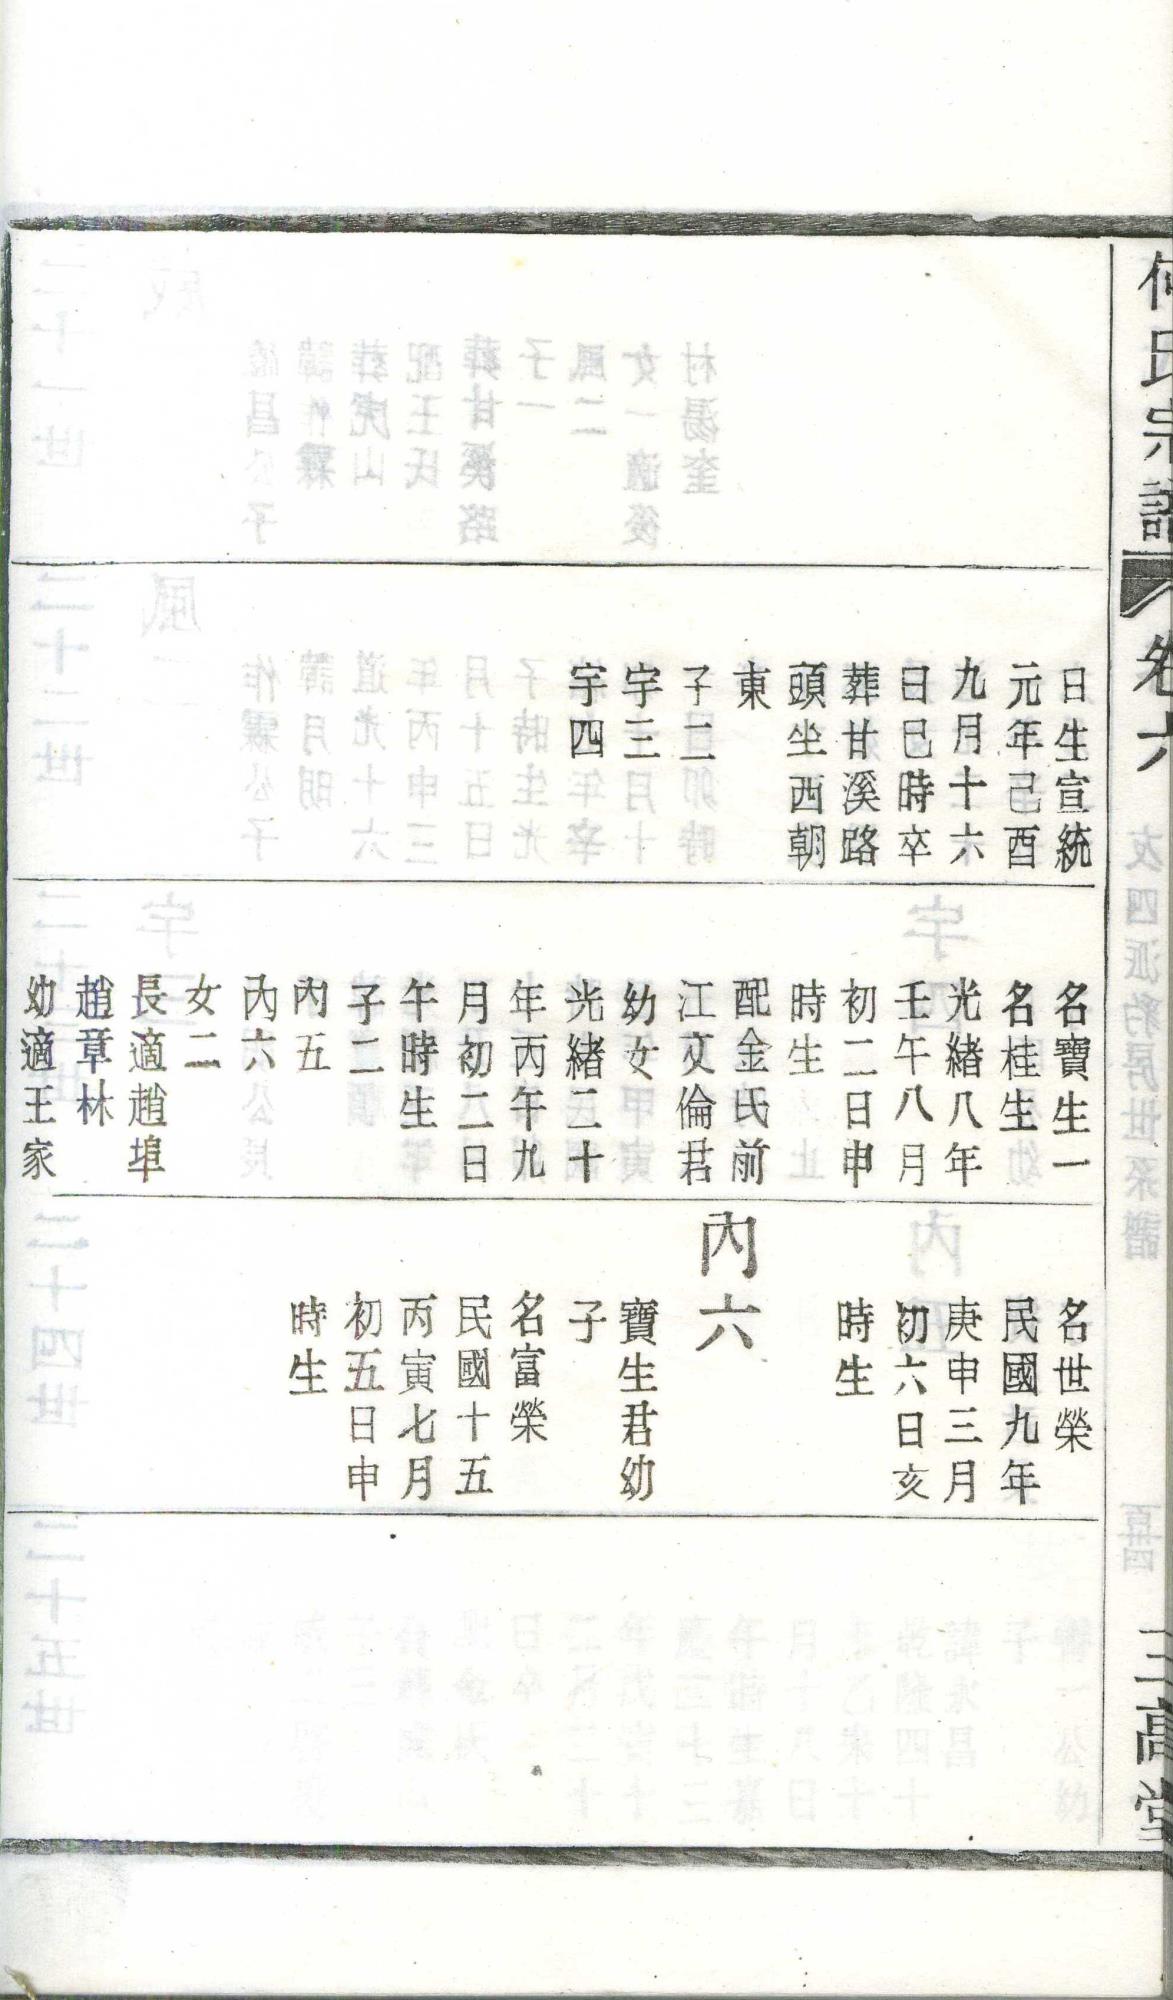 何氏宗譜
卷六
三高堂
日生宣統
元年己酉
九月十六
日巳時卒
葬甘溪路
頭坐西朝
東
子二
宇三
宇四
名寶生一
名桂生
光緒八年
壬午八月
初二日申
時生
配金氏前
江文倫君
幼女
光緒二十
年丙午九
月初二日
午時生
子二
內五
內六
女二
長適趙埠
趙章林
幼適王家
名世榮
民國九年
庚申三月
初六日亥
時生
內六
寶生君幼
子
名富榮
民國十五
丙寅七月
初五日申
時生